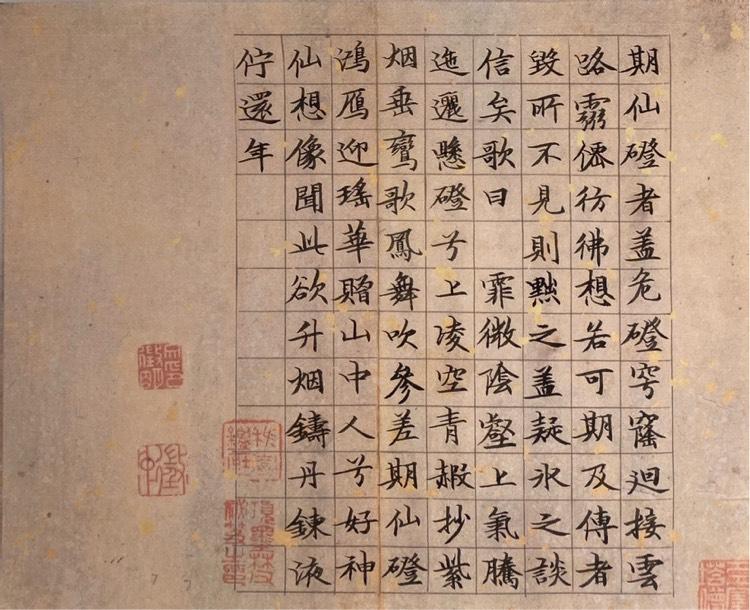 期仙磴者盖危磴穹窿迴接雲
路靈僊彷彿想若可期及傳者
毀所不見則黜之盖疑氷之談
信矣歌曰　霏微陰壑上氣騰
迤邐懸磴兮上凌空青赮抄紫
烟垂鸞歌鳳舞吹參差期仙磴
鴻鴈迎瑤華贈山中人兮好神
仙想像聞此欲升烟鑄丹鍊液
佇還年